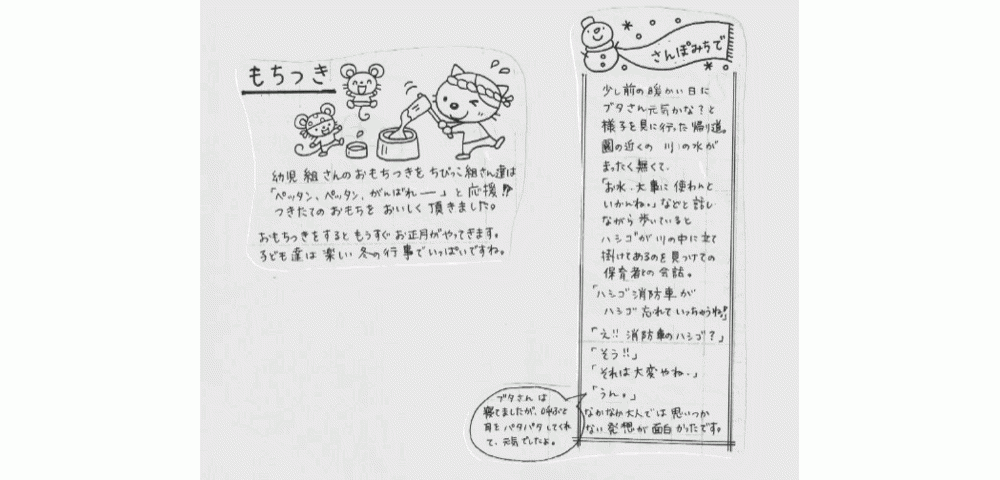 もちつき
幼児組さんのおもちつきをちびっこ組さん達は
「ペッタン、ペッタン、がんばれー」と応援!!
つきたてのおもちをおいしく頂きました。
おもちつきをするともうすぐお正月がやってきます。
子ども達は楽しい冬の行事でいっぱいですね。
さんぽみちで
少し前の暖かい日に
ブタさん元気かな?と
様子を見に行った帰り道。
園の近くの川の水が
まったく無くて、
「お水、大事に使わんと
いかんね。」などと話し
ながら歩いていると
ハシゴが川の中に立て
掛けてあるのを見つけての
保育者との会話。
「ハシゴ消防車が
ハシゴ忘れていっちゃうね!!」
「え!!消防車のハシゴ?」
「そう!!」
「それは大変やね。」
「うん。」
なかなか大人では思いつか
ない発想が面白かったです。
ブタさんは
寝てましたが、呼ぶと
耳をパタパタしてくれ
て、元気でしたよ。